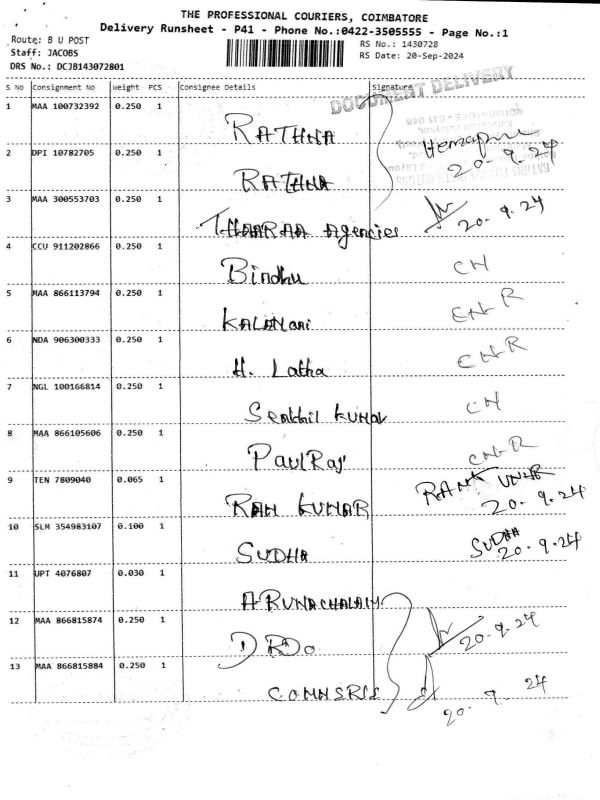 THE PROFESSIONAL COURIERS, COIMBATORE
Delivery Runsheet - P41 - Phone No.:0422-3505555 - Page No.:1
Route: B U POST
RS No.: 1430728
Staff: JACOBS
RS Date: 20-Sep-2024
DRS No.: DCJB143072801
S No Consignment No Weight PCS Consignee Details Signature
DOCUMENT DELIVERY
1 MAA 100732392 0.250 1 RATHNA
2 DPI 10782705 0.250 1 RATHNA 20.9.24
3 MAA 300553703 0.250 1 THAARAA Agencies 20.9.24
4 CCU 911202866 0.250 1 Bindhu CN
5 MAA 866113794 0.250 1 KALAMANI CN-R
6 NDA 906300333 0.250 1 H. Latha CN-R
7 NGL 100166814 0.250 1 Senthil KUMAR CN
8 MAA 866105606 0.250 1 PaulRaj CN-R
9 TEN 7809040 0.065 1 RAM KUMAR 20.9.24
10 SLM 354983107 0.100 1 SUDHA SUDHA 20.9.24
11 UPT 4076807 0.030 1 ARUNACHALAM
12 MAA 866815874 0.250 1 DRDO 20.9.24
13 MAA 866815884 0.250 1 20 9 24